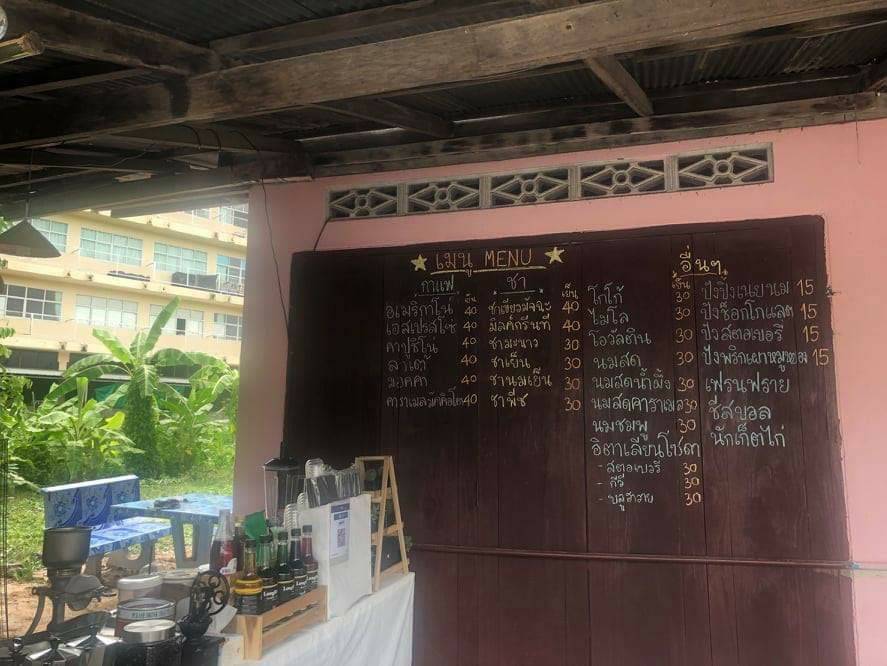 เมนู MENU
กาแฟ
เย็น
อเมริกาโน่ 40
เอสเปรสโซ่ 40
คาปูชิโน่ 40
ลาเต้ 40
มอคคา 40
คาราเมลมัคคิอาโต 40
ชา
เย็น
ชาเขียวมัจฉะ 40
มิลค์กรีนที 40
ชามะนาว 30
ชาเย็น 30
ชานมเย็น 30
ชาพีช 30
อื่นๆ
เย็น
โกโก้ 30
ไมโล 30
โอวัลติน 30
นมสด 30
นมสดน้ำผึ้ง 30
นมสดคาราเมล 30
นมชมพู 30
อิตาเลียนโซดา
- สตอเบอรี่ 30
- กีวี่ 30
- บลูฮาวาย 30
ปังปิ้งเนยนม 15
ปังช็อกโกแลต 15
ปังสตอเบอรี่ 15
ปังพริกเผาหมูหยอง 15
เฟรนฟราย
ชีสบอล
นักเก็ตไก่